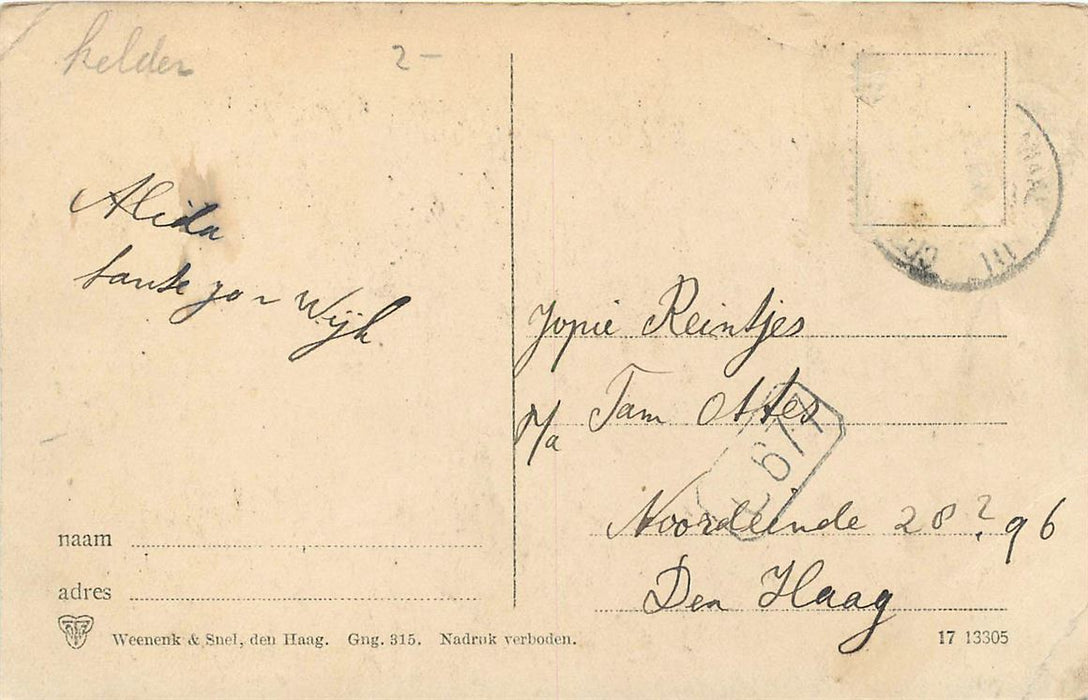 helder 2-
Alida
tante Jo v Wijk
Jopie Reintjes
P/a Fam Ottes
677
Noordeinde 28 ? 96
Den Haag
naam
adres
Weenenk & Snel, den Haag. Gng. 315. Nadruk verboden. 17 13305